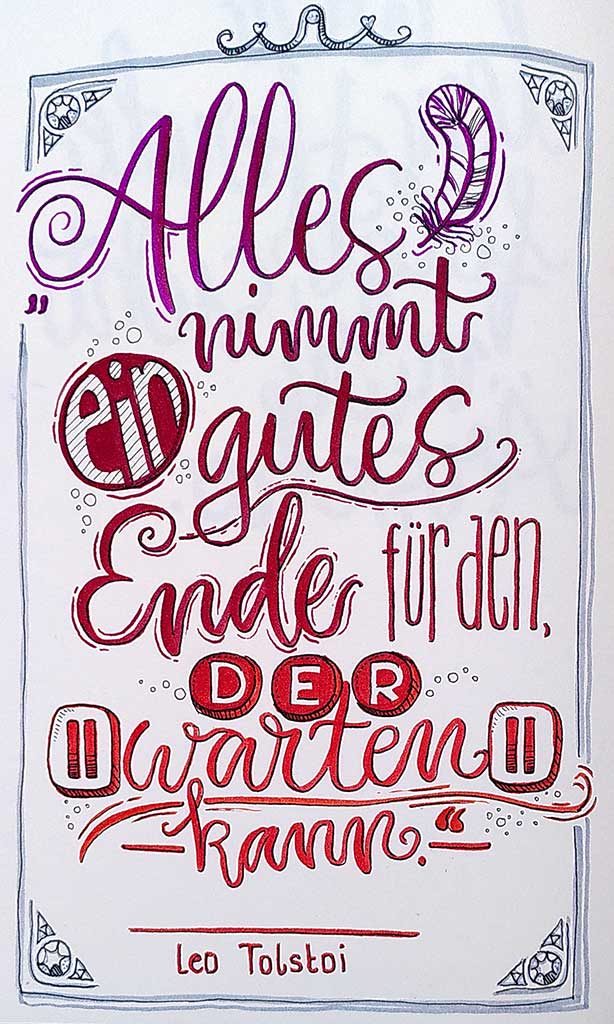 Alles
„nimmt
ein gutes
Ende für den,
DER
warten
kann.“
Leo Tolstoi